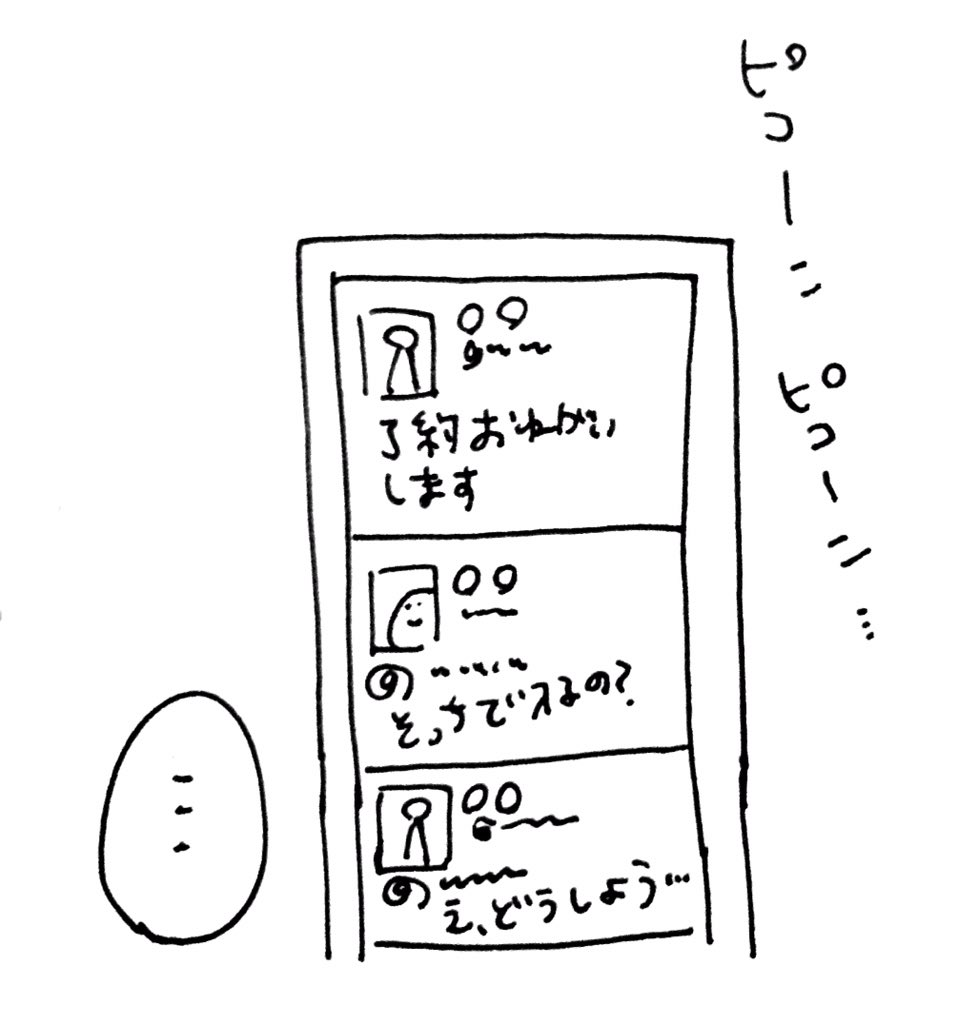 ピコーン
ピコーン…
○○
了約おねがい
します
○○
@
そっちで入るの?
○○
@
え、どうしよう…
…